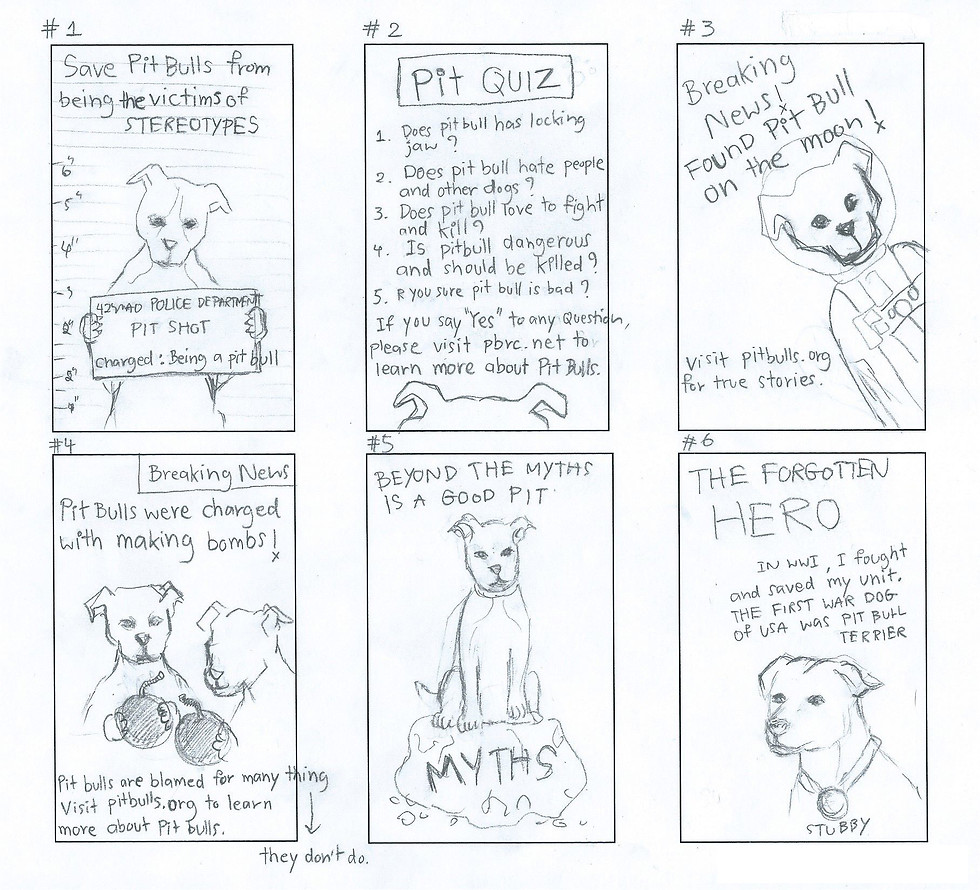 #1
Save Pit Bulls from
being the victims of
STEREOTYPES
6"
5"
4"
3
2"
2"
1"
POLICE DEPARTMENT
PIT SHOT
charged: Being a pit bull
#2
Pit QUIZ
1. Does pit bull has locking
jaw?
2. Does pit bull hate people
and other dogs?
3. Does pit bull love to fight
and kill?
4. Is pitbull dangerous
and should be killed?
5. R you sure pit bull is bad?
If you say "Yes" to any Question,
please visit pbrc.net to
learn more about Pit Bulls.
#3
Breaking
News!
Found Pit Bull
on the moon!
Visit pitbulls.org
for true stories.
#4
Breaking News
Pit Bulls were charged
with making bombs!
Pit bulls are blamed for many thing
Visit pitbulls.org to learn
more about Pit bulls.
they don't do.
#5
BEYOND THE MYTHS
IS A GOOD PIT.
MYTHS
#6
THE FORGOTTEN
HERO
IN WWI, I fought
and saved my unit.
THE FIRST WAR DOG
Of USA was PIT BULL
TERRIER
STUBBY